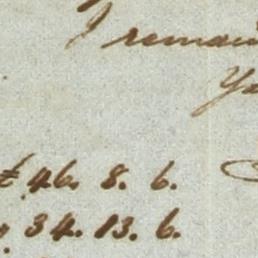 I remain
Yo
£ 46. 8. 6.
34. 13. 6.